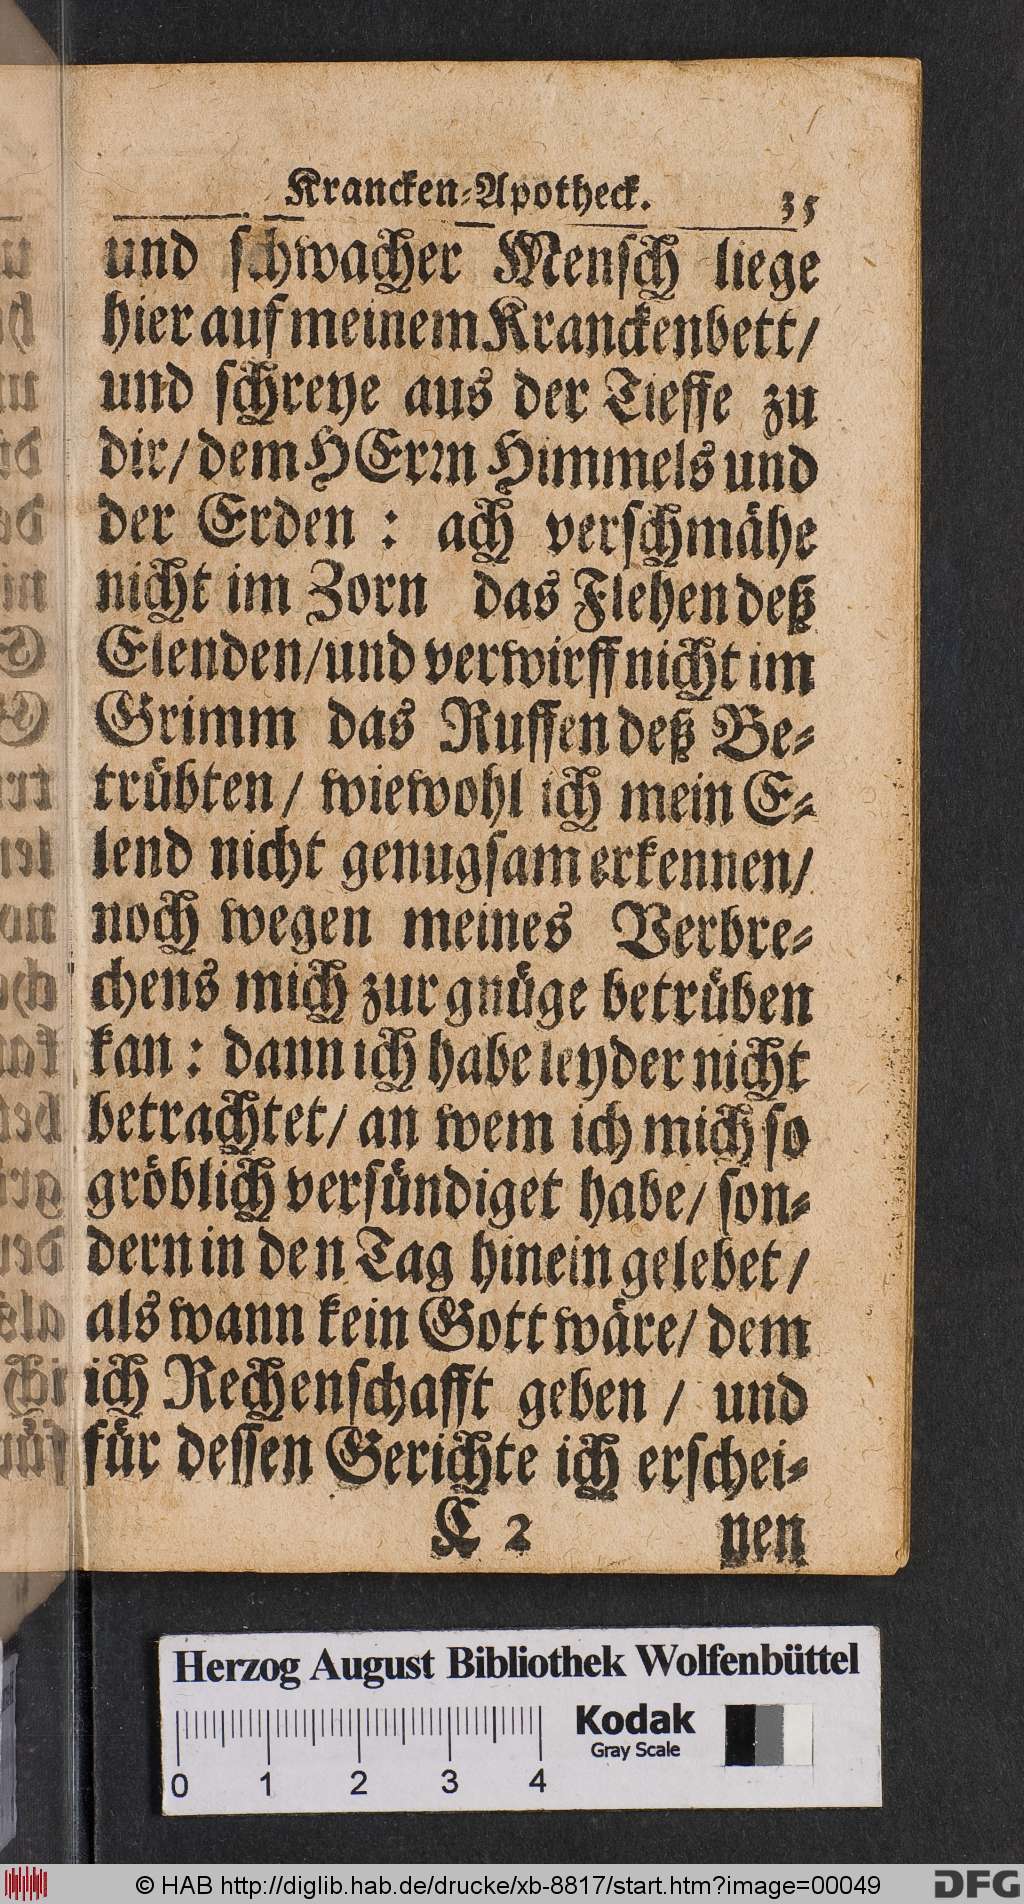 Krancken-Apotheck. 35
und schwacher Mensch liege
hier auf meinem Kranckenbett/
und schreye aus der Tieffe zu
dir/ dem HErꝛn Himmels und
der Erden : ach verschmähe
nicht im Zorn das Flehen deß
Elenden/ und verwirff nicht im
Grimm das Ruffen deß Be-
trübten/ wiewohl ich mein E-
lend nicht genugsam erkennen/
noch wegen meines Verbre-
chens mich zur gnüge betrüben
kan : dann ich habe leyder nicht
betrachtet/ an wem ich mich so
gröblich versündiget habe/ son-
dern in den Tag hinein gelebet/
als wann kein Gott wäre/ dem
ich Rechenschafft geben / und
für dessen Gerichte ich erschei-
C 2 nen
Herzog August Bibliothek Wolfenbüttel
Kodak
Gray Scale
0 1 2 3 4
© HAB http://diglib.hab.de/drucke/xb-8817/start.htm?image=00049
DFG